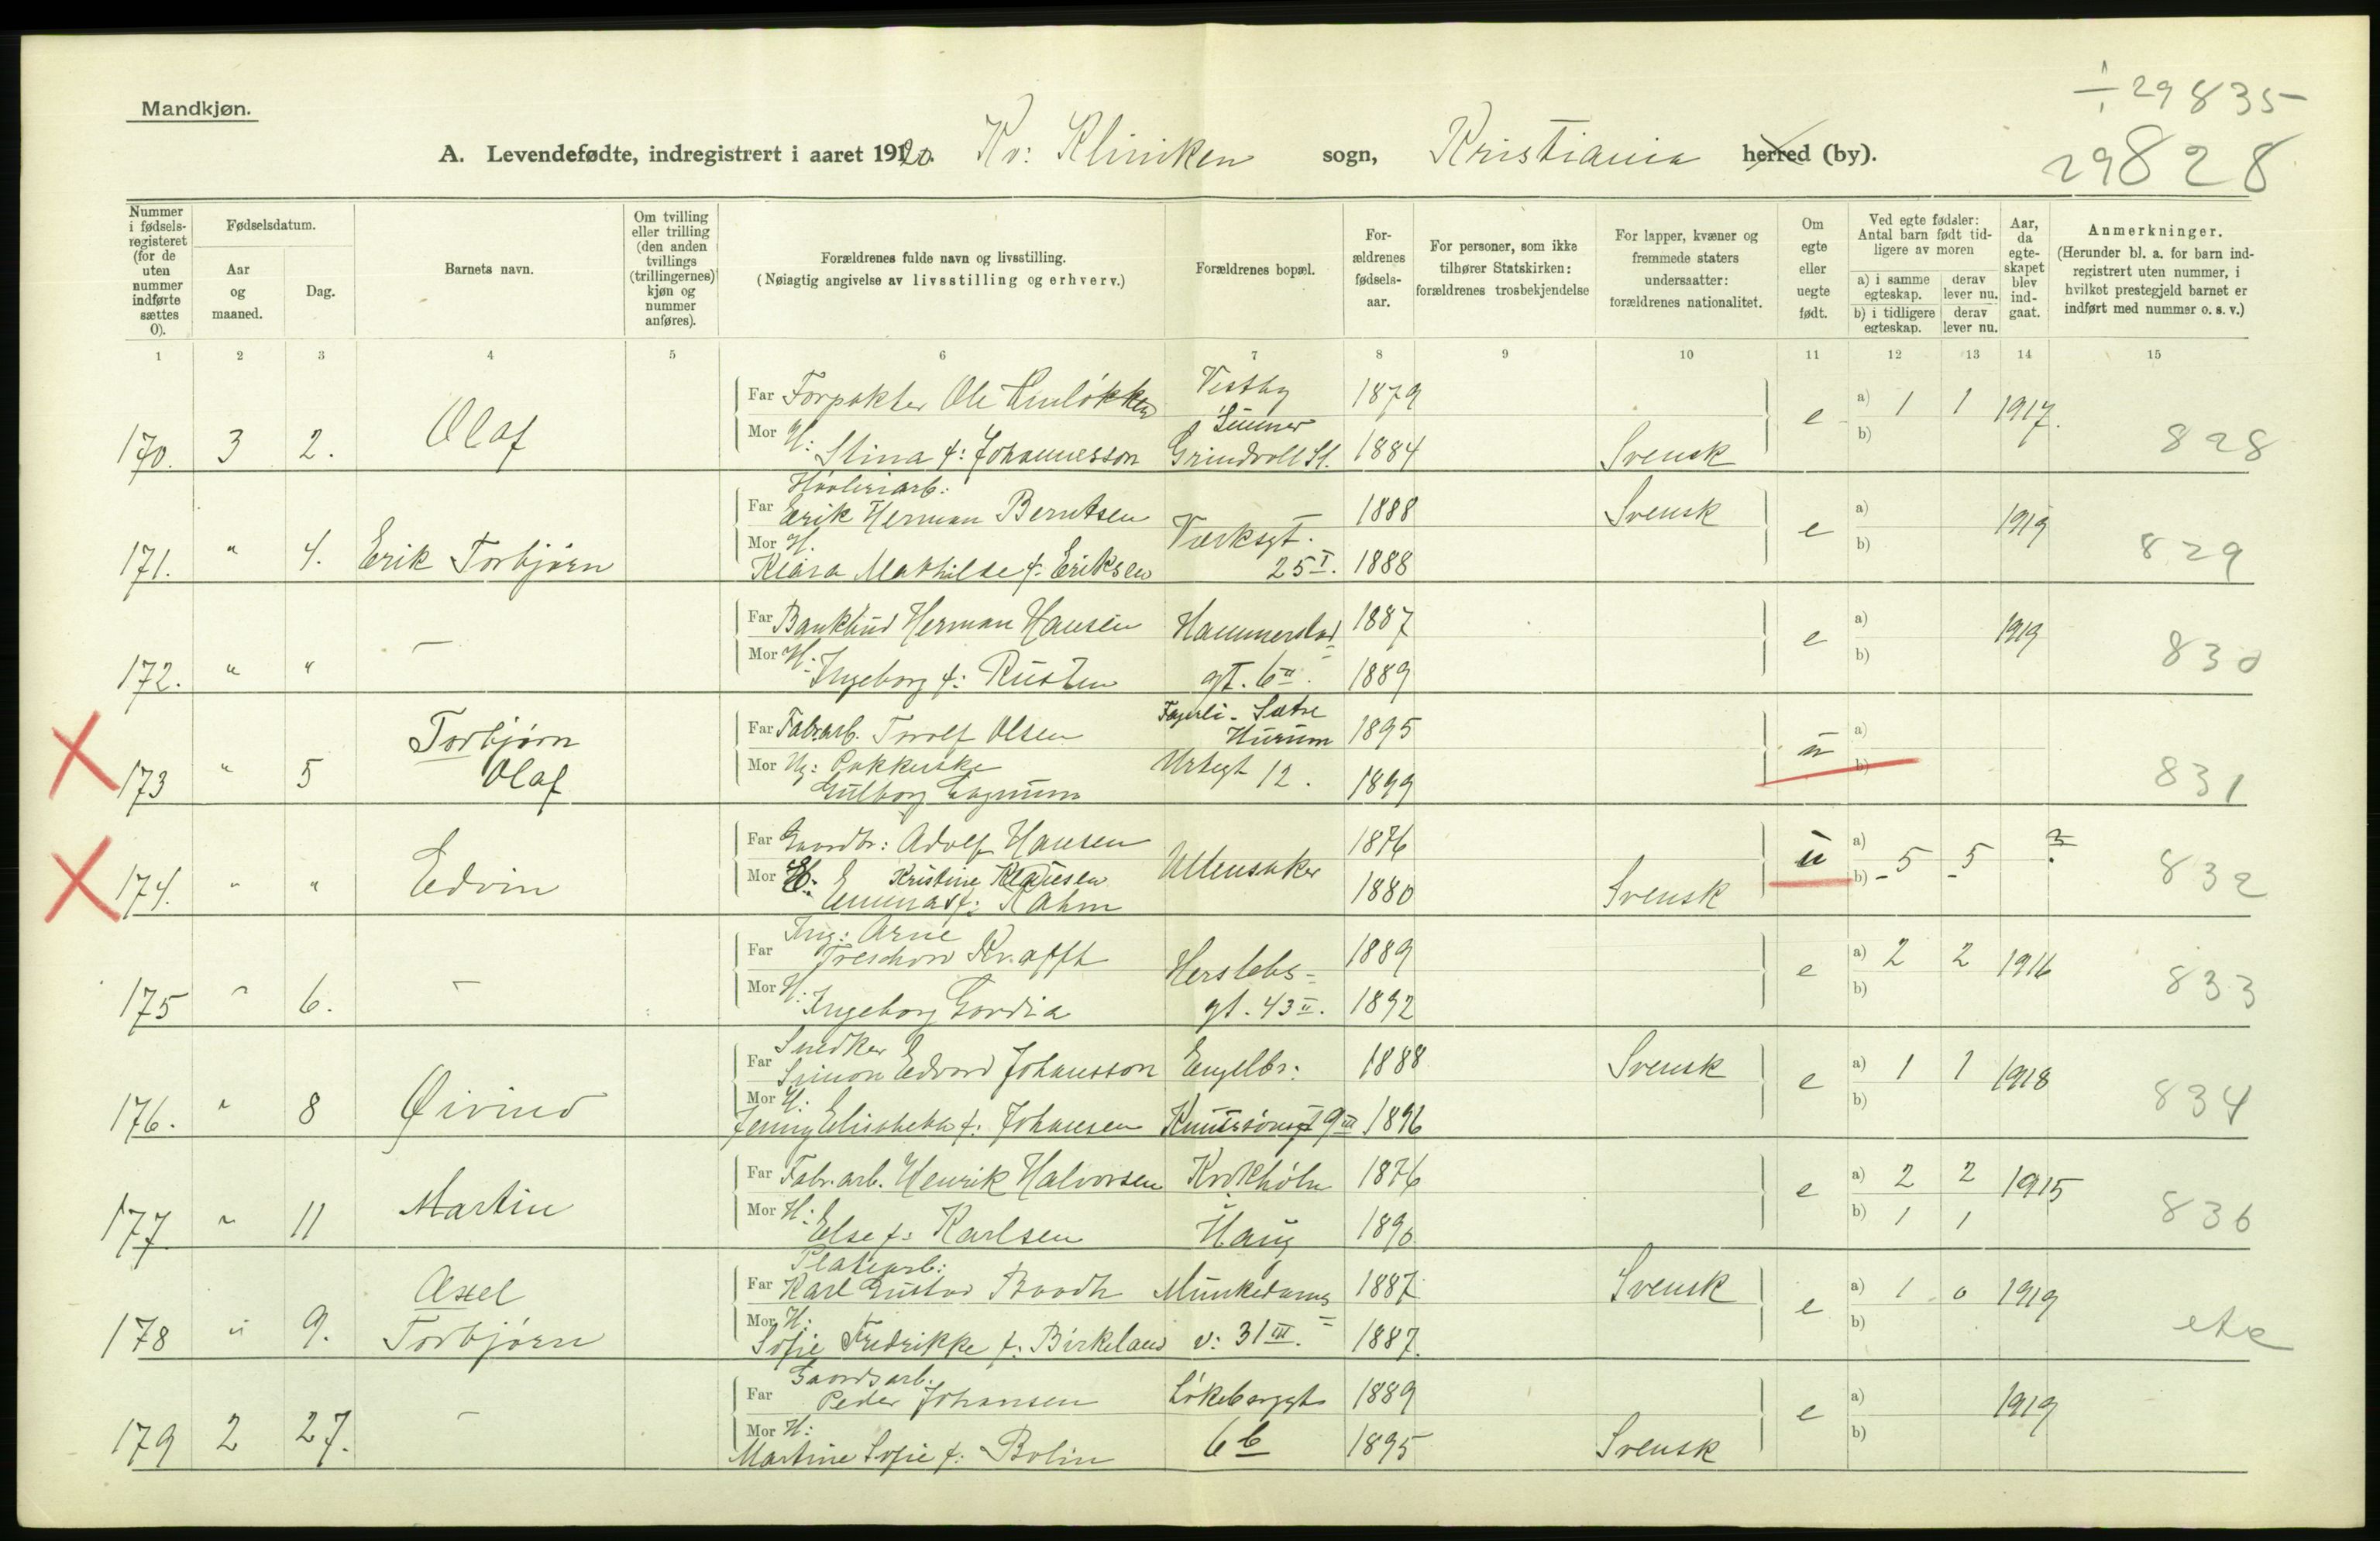 ÷ 29 835
Mandkjøn.
A. Levendefødte, indregistrert i aaret 1920. Kv: Kliniken sogn, Kristiania herred (by).
29828
Nummer i fødselsregisteret (for de uten nummer indførte sættes 0).
Fødselsdatum.
Aar og maaned.
Dag.
Barnets navn.
Om tvilling eller trilling (den anden tvillings (trillingernes) kjøn og nummer anføres).
Forældrenes fulde navn og livsstilling.
(Nøiagtig angivelse av livsstilling og erhverv.)
Forældrenes bopæl.
Forældrenes fødselsaar.
For personer, som ikke tilhører Statskirken: forældrenes trosbekjendelse
For lapper, kvæner og fremmede staters undersaatter: forældrenes nationalitet.
Om egte eller uegte født.
Ved egte fødsler: Antal barn født tidligere av moren
a) i samme egteskap.
derav lever nu.
b) i tidligere egteskap.
derav lever nu.
Aar, da egteskapet blev indgaat.
Anmerkninger.
(Herunder bl. a. for barn indregistrert uten nummer, i hvilket prestegjeld barnet er indført med nummer o. s. v.)
1 2 3 4 5 6 7 8 9 10 11 12 13 14 15
Far Forpakter Ole Vestby 1879 a) 1 1 1917.
170. 3 2. Olaf Mor H: Stina f: Johannesson Grindvoll St. 1884 Svensk e b) 828
Far Erik Herman Berntsen 1888 Svensk a) 1919
171. " 4. Erik Torbjørn Mor H. Klara Mathilde f: Eriksen Verksgt. 25 I. 1888 e b) 829
Far Bankbud Herman Hansen Hammerstad 1887 a) 1919
172. " " — Mor H: Ingeborg f: Rusten gt. 6 II. 1889 e b) 830
Far Fabr.arb. Torolf Olsen Fagerli - Sætre Hurum 1895 a)
173 " 5 Torbjørn Olaf Mor Ug: Pakkerske Gulborg Urtegt 12. 1899 u b) 831
Far Gaardbr: Adolf Hansen 1876 a)
174. " " Edvin Mor Kristine Klausen Emma f: Rahm Ullensaker 1880 Svensk u b) - 5 - 5 ? 832
Far Ing: Arne Treschow Krafft 1889 a) 2 2 1916
175 " 6. — Mor H: Ingeborg Gordia Herslebs= gt. 43 II. 1892 e b) 833
Far Snedker Simon Edvard Johansson Engelbr: 1888 Svensk a) 1 1 1918
176. " 8 Øivind Mor H: Jenny Elisabeth f: Johansen 9 III 1896 e b) 834
Far Fabr.arb. Henrik Halvorsen Krokhøln 1876 a) 2 2 1915
177 " 11 Martin Mor H: Else f: Karlsen Haug 1890 e b) 1 1 836
Far Platearb: Karl Gustav Munkedams= 1887 Svensk a) 1 0 1919
178 " 9. Axel Torbjørn Mor H: Sofie Fredrikke f: Birkeland v: 31 III. 1887. e b) etc
Far Gaardsarb. Peder Johansen Løkeberggt 1889 a) 1919
179 2 27. — Mor H: Martine Sofie f: Bolin 6 b 1895 Svensk e b)